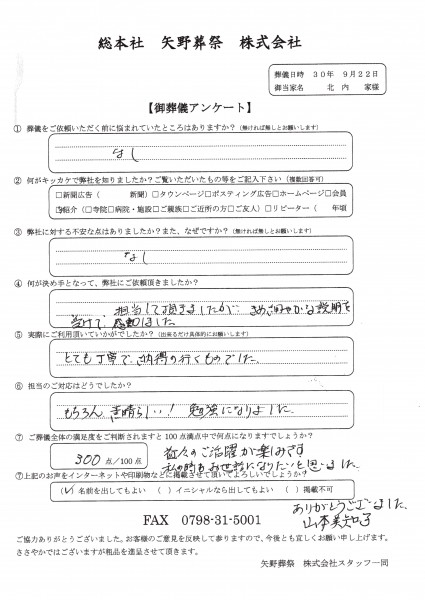 総本社 矢野葬祭 株式会社
葬儀日時 30年 9月22日
御当家名 北内 家様
【御葬儀アンケート】
① 葬儀をご依頼いただく前に悩まれていたところはありますか？（無ければ無しとお願いします）
なし
② 何がキッカケで弊社を知りましたか？ご覧いただいたもの等をご記入下さい（複数回答可）
□新聞広告（ 新聞）□タウンページ□ポスティング広告□ホームページ□会員
☑紹介（□寺院□病院・施設□ご親族□ご近所の方□ご友人）□リピーター（ 年頃
③ 弊社に対する不安な点はありましたか？また、なぜですか？（無ければ無しとお願いします）
なし
④ 何が決め手となって、弊社にご依頼頂きましたか？
担当して頂きましたが きめこまやかな説明を
受けて、感動しました
⑤ 実際にご利用頂いていかがでしたか？（出来るだけ具体的にお願いします）
とても丁寧で、納得の行くものでした。
⑥ 担当のご対応はどうでしたか？
もちろん 素晴らしい！ 勉強になりました。
⑦ ご葬儀全体の満足度をご判断されますと100点満点中で何点になりますでしょうか？
300 点/100点
益々のご活躍が楽しみです
私の時もお世話になりたいと思いました。
⑦上記のお声をインターネットや印刷物などに掲載させて頂いてよろしいでしょうか？
（✓）名前を出してもよい （ ）イニシャルなら出してもよい （ ）掲載不可
ありがとうございました。
山本
FAX 0798-31-5001
ご協力ありがとうございました。お客様のご意見を反映して参りますので、今後とも宜しくお願い申し上げます。
ささやかではございますが粗品を進呈させて頂きます。
矢野葬祭 株式会社スタッフ一同